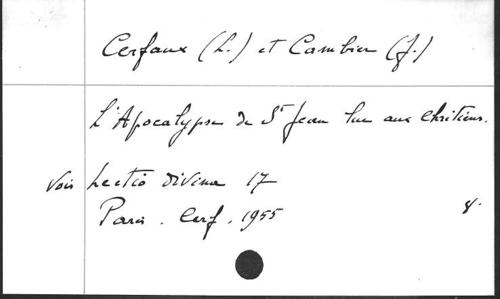 Cerfaux (L.) et Cambier (J.)
L'Apocalypse de St Jean lue aux Chrétiens.
Voir Lectio divina 17
Paris. Cerf. 1955 8.